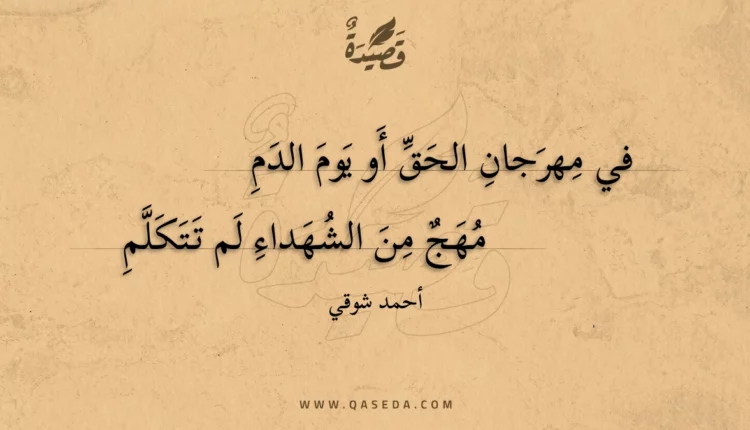 قَصِيْدَةٌ
في مِهرَجانِ الحَقِّ أَو يَومَ الدَمِ
مُهَجٌ مِنَ الشُهَداءِ لَم تَتَكَلَّمِ
أحمد شوقي
WWW.QASEDA.COM